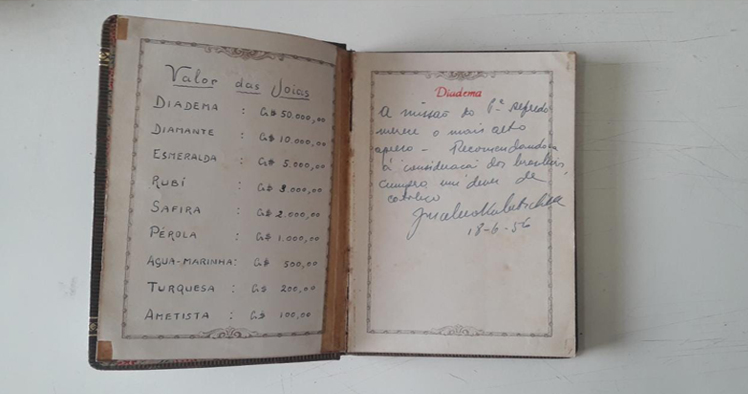 Valor das Joias
DIADEMA : Cr$ 50.000,00
DIAMANTE : Cr$ 10.000,00
ESMERALDA : Cr$ 5.000,00
RUBÍ : Cr$ 3.000,00
SAFIRA : Cr$ 2.000,00
PÉROLA : Cr$ 1.000,00
AGUA-MARINHA: Cr$ 500,00
TURQUESA : Cr$ 200,00
AMETISTA : Cr$ 100,00
Diadema
A missão do Pe Alfredo
merece o mais alto
apreço - Recomendando-a
á consideração dos brasileiros,
cumpro um dever de
católico
Juscelino Kubitschek
18-6-56